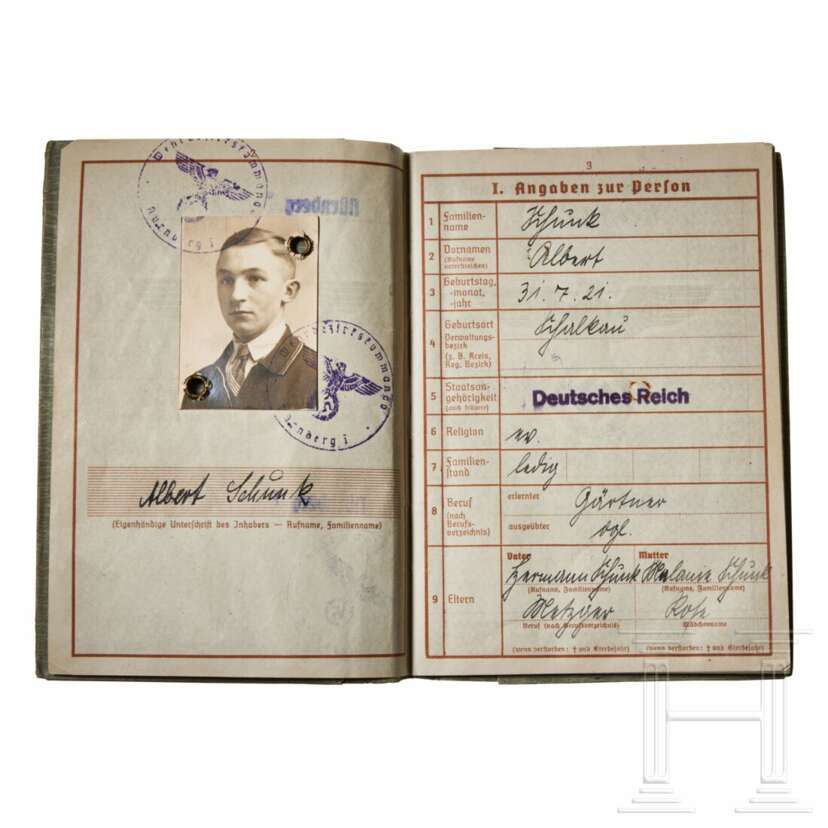 Wehrbezirkskommando
Nürnberg I
Nürnberg
Wehrbezirkskommando
Nürnberg I
Albert Schunk
(Eigenhändige Unterschrift des Inhabers — Rufname, Familienname)
3
I. Angaben zur Person
1 Familien-
name
Schunk
2 Vornamen
(Rufname
unterstreichen)
Albert
3 Geburtstag,
-monat,
-jahr
31. 7. 21.
4 Geburtsort
Verwaltungs-
bezirk
(z. B. Kreis,
Reg. Bezirk)
Schalkau
5 Staatsan-
gehörigkeit
(auch frühere)
Deutsches Reich
6 Religion
ev.
7 Familien-
stand
ledig
8 Beruf
(nach
Berufs-
verzeichnis)
erlernter
Gärtner
ausgeübter
dgl.
9 Eltern
Vater Mutter
Hermann Schunk Melanie Schunk
(Rufname, Familienname) (Rufname, Familienname)
Metzger Rose
Beruf (nach Berufsverzeichnis) Mädchenname
(wenn verstorben: † und Sterbejahr) (wenn verstorben: † und Sterbejahr)